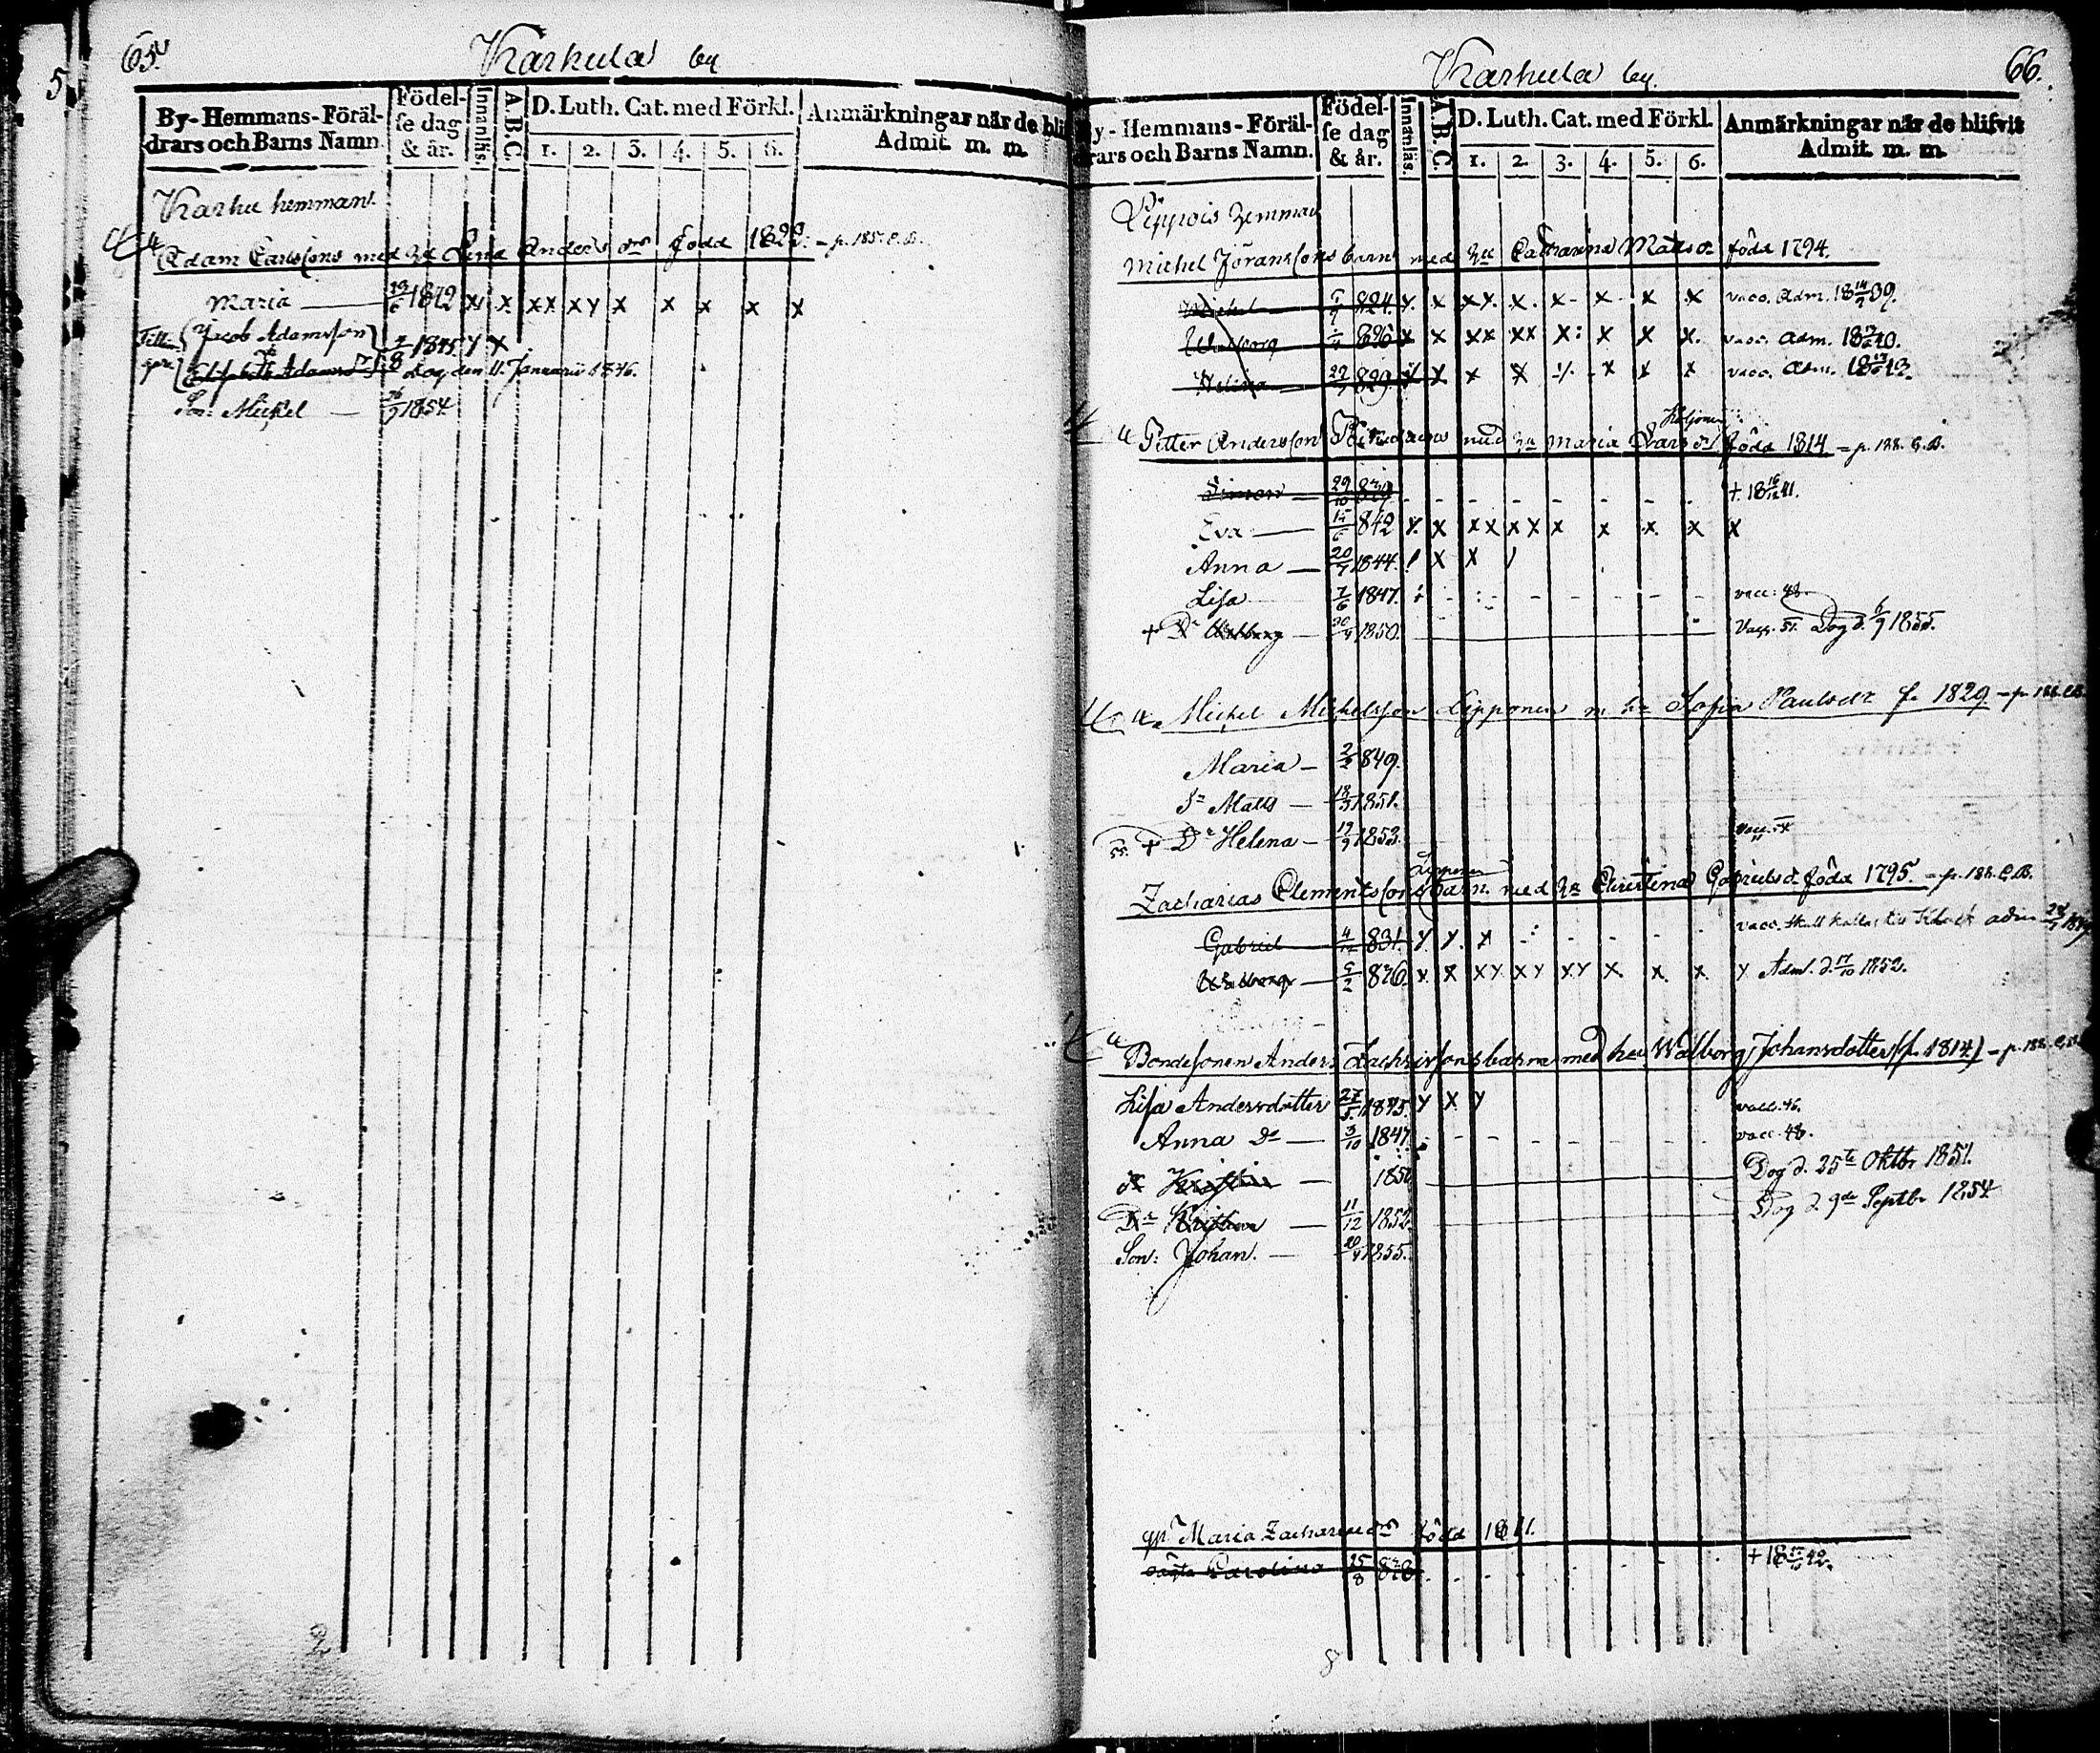 65.
Karhula by
5
By-Hemmans-Föräl-drars och Barns Namn. Födel-se dag & år. Innanläs. A.B.C. D. Luth. Cat. med Förkl. 1. 2. 3. 4. 5. 6. Anmärkningar när de blif Admit. m. m.
Karhu hemman.
Adam Carlssons med hu Lena Anders dr född 1822. - p. 185. C.B.
Maria 1842 x x xx xy x x x x x
Jacob Adamsson 1845 y x
Elisabeth Adamsdr Dog den 11 Januarii 1846.
Son: Mickel 26/9 1854
2
Karhula by.
66.
By-Hemmans-Föräl-drars och Barns Namn. Födel-se dag & år. Innanläs. A.B.C. D. Luth. Cat. med Förkl. 1. 2. 3. 4. 5. 6. Anmärkningar när de blifvit Admit. m. m.
Lippois hemman
Michel Jöranssons barn med hu Catharina Matsdr född 1794.
Michel 824. x. x xx. x. x- x- x x vacc. Adm. 18 39.
Walborg 826 x x xx xx x: x x x. vacc. Adm. 18 40.
Helena 22 829. x x x x x x x vacc. Adm. 18 43.
Petter Andersson med hu Maria Lars dr född 1814 - p. 188. C.B.
Simon 29/10 839 - - - - - - - + 18 16/12 41.
Eva 15/6 842 x. x xx xx x x x. x x
Anna 20/7 1844. / x x /
Lisa 7/6 1847. : - - - - - - vacc: 48.
+ Dr Walborg 30/4 1850. Vacc. 51. Dog d. 6/7 1855.
Michel Michelsson Lipponen m hu Sofia Paulsdr f. 1829 - p 188. C.B.
Maria - 2/2 849.
Sn Matts - 18/3 1851.
55. + Dr Helena - 19/9 1853. vacc. 54
Lipponen
Zacharias Clementssons barn med hu Christina Gabrielsd. född 1795. - p. 188. C.B.
Gabriel 4/12 831. y. y. x - - - - - vacc. skall kallas till adm
Walborg 5/2 836. x. x xy xy xy x. x. x y Adm. d. 17/10 1852.
Bondesonen Anders Zachrissons barn med hu Walborg Johansdotter (f. 1814) - p. 188. C.B.
Lisa Andersdotter 27/5 1845. y x y vacc. 46.
Anna Dr - 3/10 1847. - - - - - vacc. 48.
Dr Kristin - 1850 Dog d. 25te Oktbr 1851.
Dr Kristina - 11/12 1852 Dog d 9de Septbr 1854
Son: Johan. - 1855.
Maria Zacharie dr född 1811.
oägta Carolina 25/8 838 - - - - + 18 42.
8